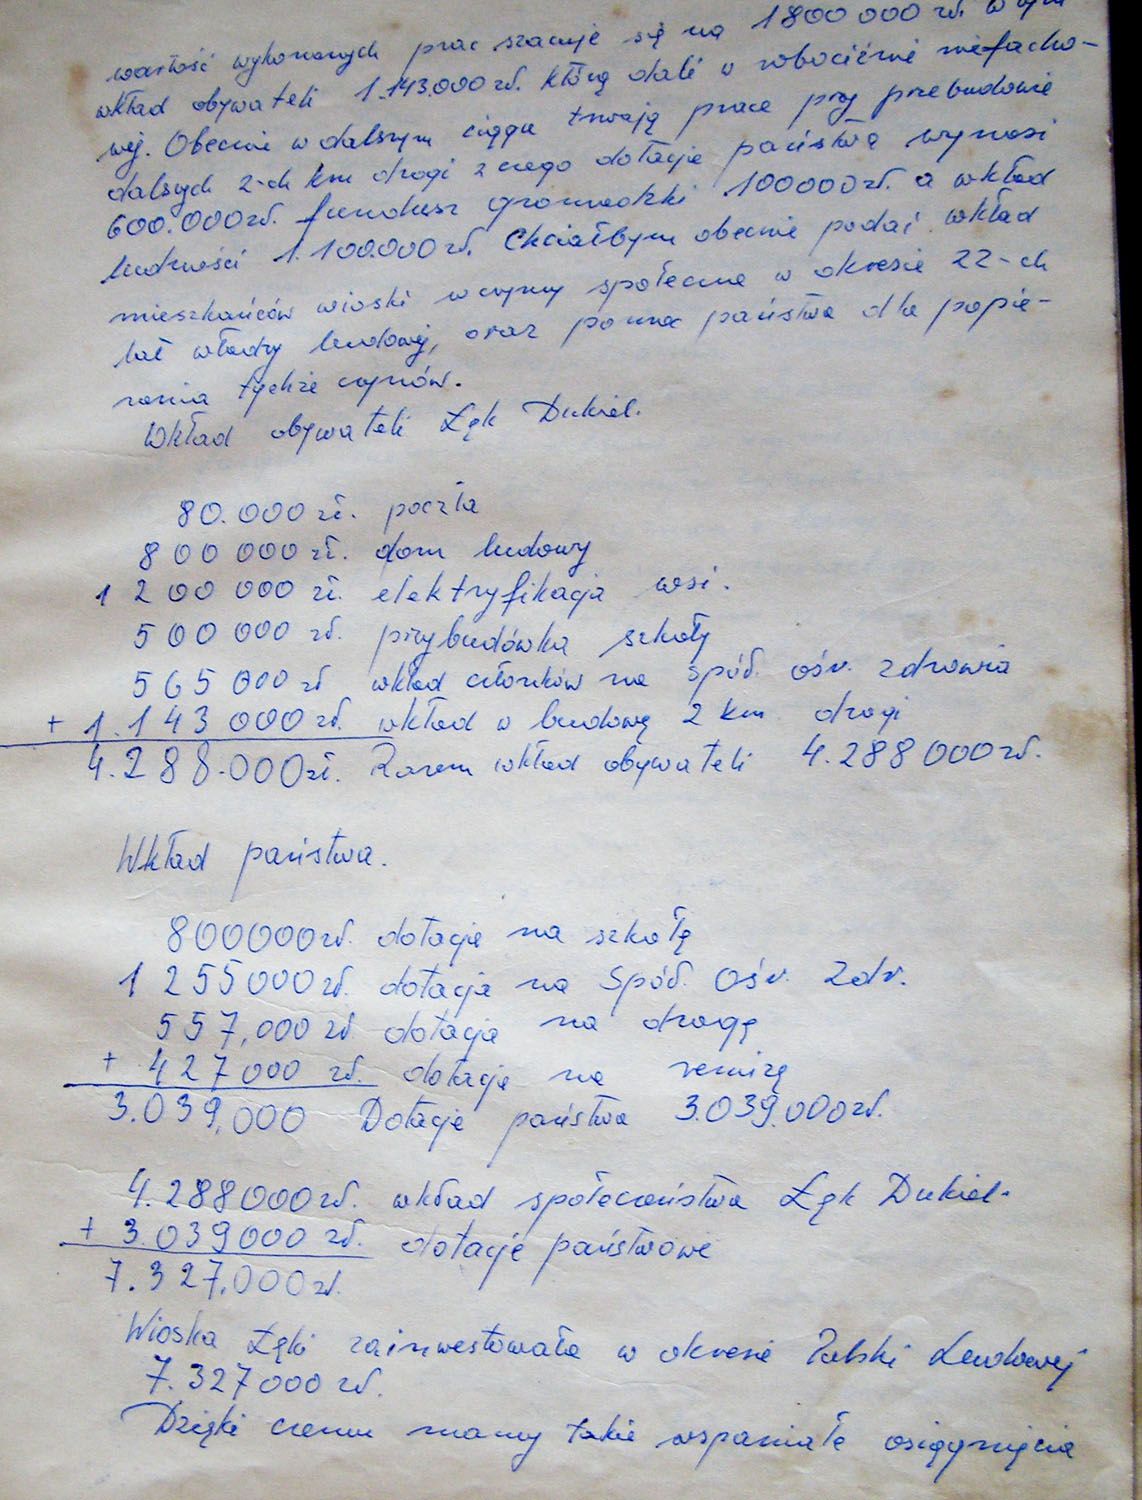 wartość wykonanych prac szacuje się na 1800 000 zł. w tym
wkład obywateli 1.143.000 zł. którą dali w robociźnie niefacho-
wej. Obecnie w dalszym ciągu trwają prace przy przebudowie
dalszych 2-ch km drogi z czego dotacje państwa wynosi
600.000 zł. fundusz gromadzki 100000 zł. a wkład
ludności 1.100.000 zł. Chciałbym obecnie podać wkład
mieszkańców wioski w czyny społeczne w okresie 22-ch
lat władzy ludowej, oraz pomoc państwa dla popie-
rania tychże czynów.
Wkład obywateli Łęk Dukiel.
80.000 zł. poczta
800 000 zł. dom ludowy
1 200 000 zł. elektryfikacja wsi.
500 000 zł. przybudówka szkoły
565 000 zł wkład członków na spół. ośr. zdrowia
+ 1.143 000 zł. wkład w budowę 2 km drogi
4.288.000 zł. Razem wkład obywateli 4.288 000 zł.
Wkład państwa.
800000 zł. dotacje na szkołę
1 255000 zł. dotacja na Spół. Ośr. Zdr.
557,000 zł dotacja na drogę
+ 427000 zł. dotację na remizę
3.039,000 Dotacje państwa 3.039.000 zł.
4.288000 zł. wkład społeczeństwa Łęk Dukiel.
+ 3.039000 zł. dotacje państwowe
7.327,000 zł.
Wioska Łęki zainwestowała w okresie Polski Ludowej
7.327000 zł.
Dzięki czemu mamy takie wspaniałe osiągnięcia